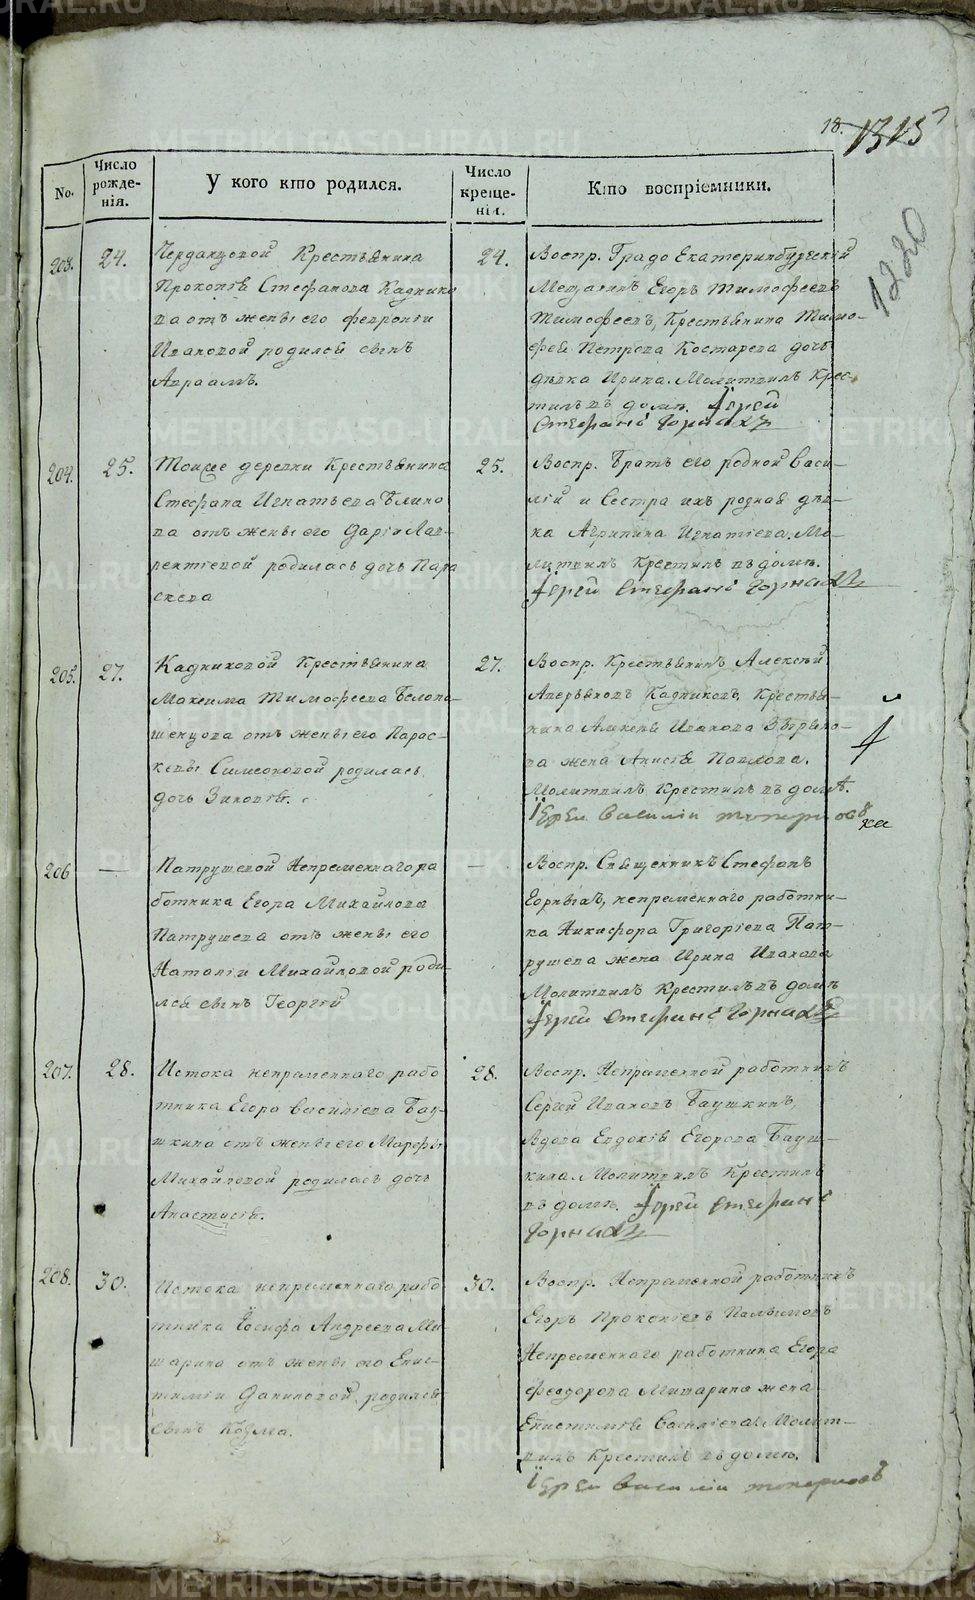 18.
1315
1220
No.
Число рожденія.
У кого кто родился.
Число крещенія.
Кто воспріемники.
203.
24.
Черданцовой Крестьянина
Прокопія Стефанова Каднико
ва отъ жены его Февроніи
Ивановой родился сынъ
Авраамъ.
24.
Воспр. Градо Екатеринбургскій
Мещанинъ Егоръ Тимофеевъ
Тимофеевъ, Крестьянина Тимо-
фея Петрова Костарева дочь
дѣвка Ирина. Молитвилъ Крес-
тилъ въ домѣ. Іерей
Стефанъ Горных
204.
25.
Тоиже деревни Крестьянина
Стефана Игнатьева Блино
ва отъ жены его Даріи Лав-
рентіевой родилась дочь Пара
скева
25.
Воспр. Братъ его родной Васи-
лій и Сестра ихъ родная дѣв-
ка Агрипина Игнатіева. Мо-
литвилъ Крестилъ въ домѣ.
Іерей Стефанъ Горных
205.
27.
Кадниковой Крестьянина
Максима Тимофеева Белоно-
шенцова отъ жены его Парас-
кевы Симеоновой родилась
дочь Зиновія.
27.
Воспр. Крестьянинъ Алексѣй
Аверьяновъ Кадниковъ, Крестья-
нина Ивanова Звѣрево-
ва жена Анисія Павлова.
Молитвилъ Крестилъ въ домѣ.
Іерей Василій
206
—
Патрушевой Непременнаго ра
ботника Егора Михайлова
Патрушева отъ жены его
Наталіи Михайловой роди-
лся сынъ Георгій
—
Воспр. Священникъ Стефанъ
Горныхъ, непременнаго работни-
ка Никифора Григоріева Пат-
рушева жена Ирина Иванова
Молитвилъ Крестилъ въ домѣ
Іерей Стефанъ Горных
207.
28.
Истока непременнаго рабо
тника Егора Василіева Бау-
шкина отъ жены его Марфы
Михайловой родилась дочь
Анастасія.
28.
Воспр. Непременной работникъ
Сергей Ивановъ Баушкинъ
Вдова Евдокія Егорова Бауш-
кина. Молитвилъ Крестилъ
въ домѣ. Іерей Стефанъ
Горных
208.
30.
Истока непременнаго рабо-
тника Іосифа Андреева Ми-
шарина отъ жены его Епис-
тиміи Даниловой родился
сынъ Козма.
30.
Воспр. Непременной работникъ
Егоръ Прокопіевъ
Непременнаго работника Егора
Феодорова Мишарина жена
Епистимія Василіева. Молит-
вилъ Крестилъ въ домѣ.
Іерей Василій
METRIKI.GASO-URAL.RU